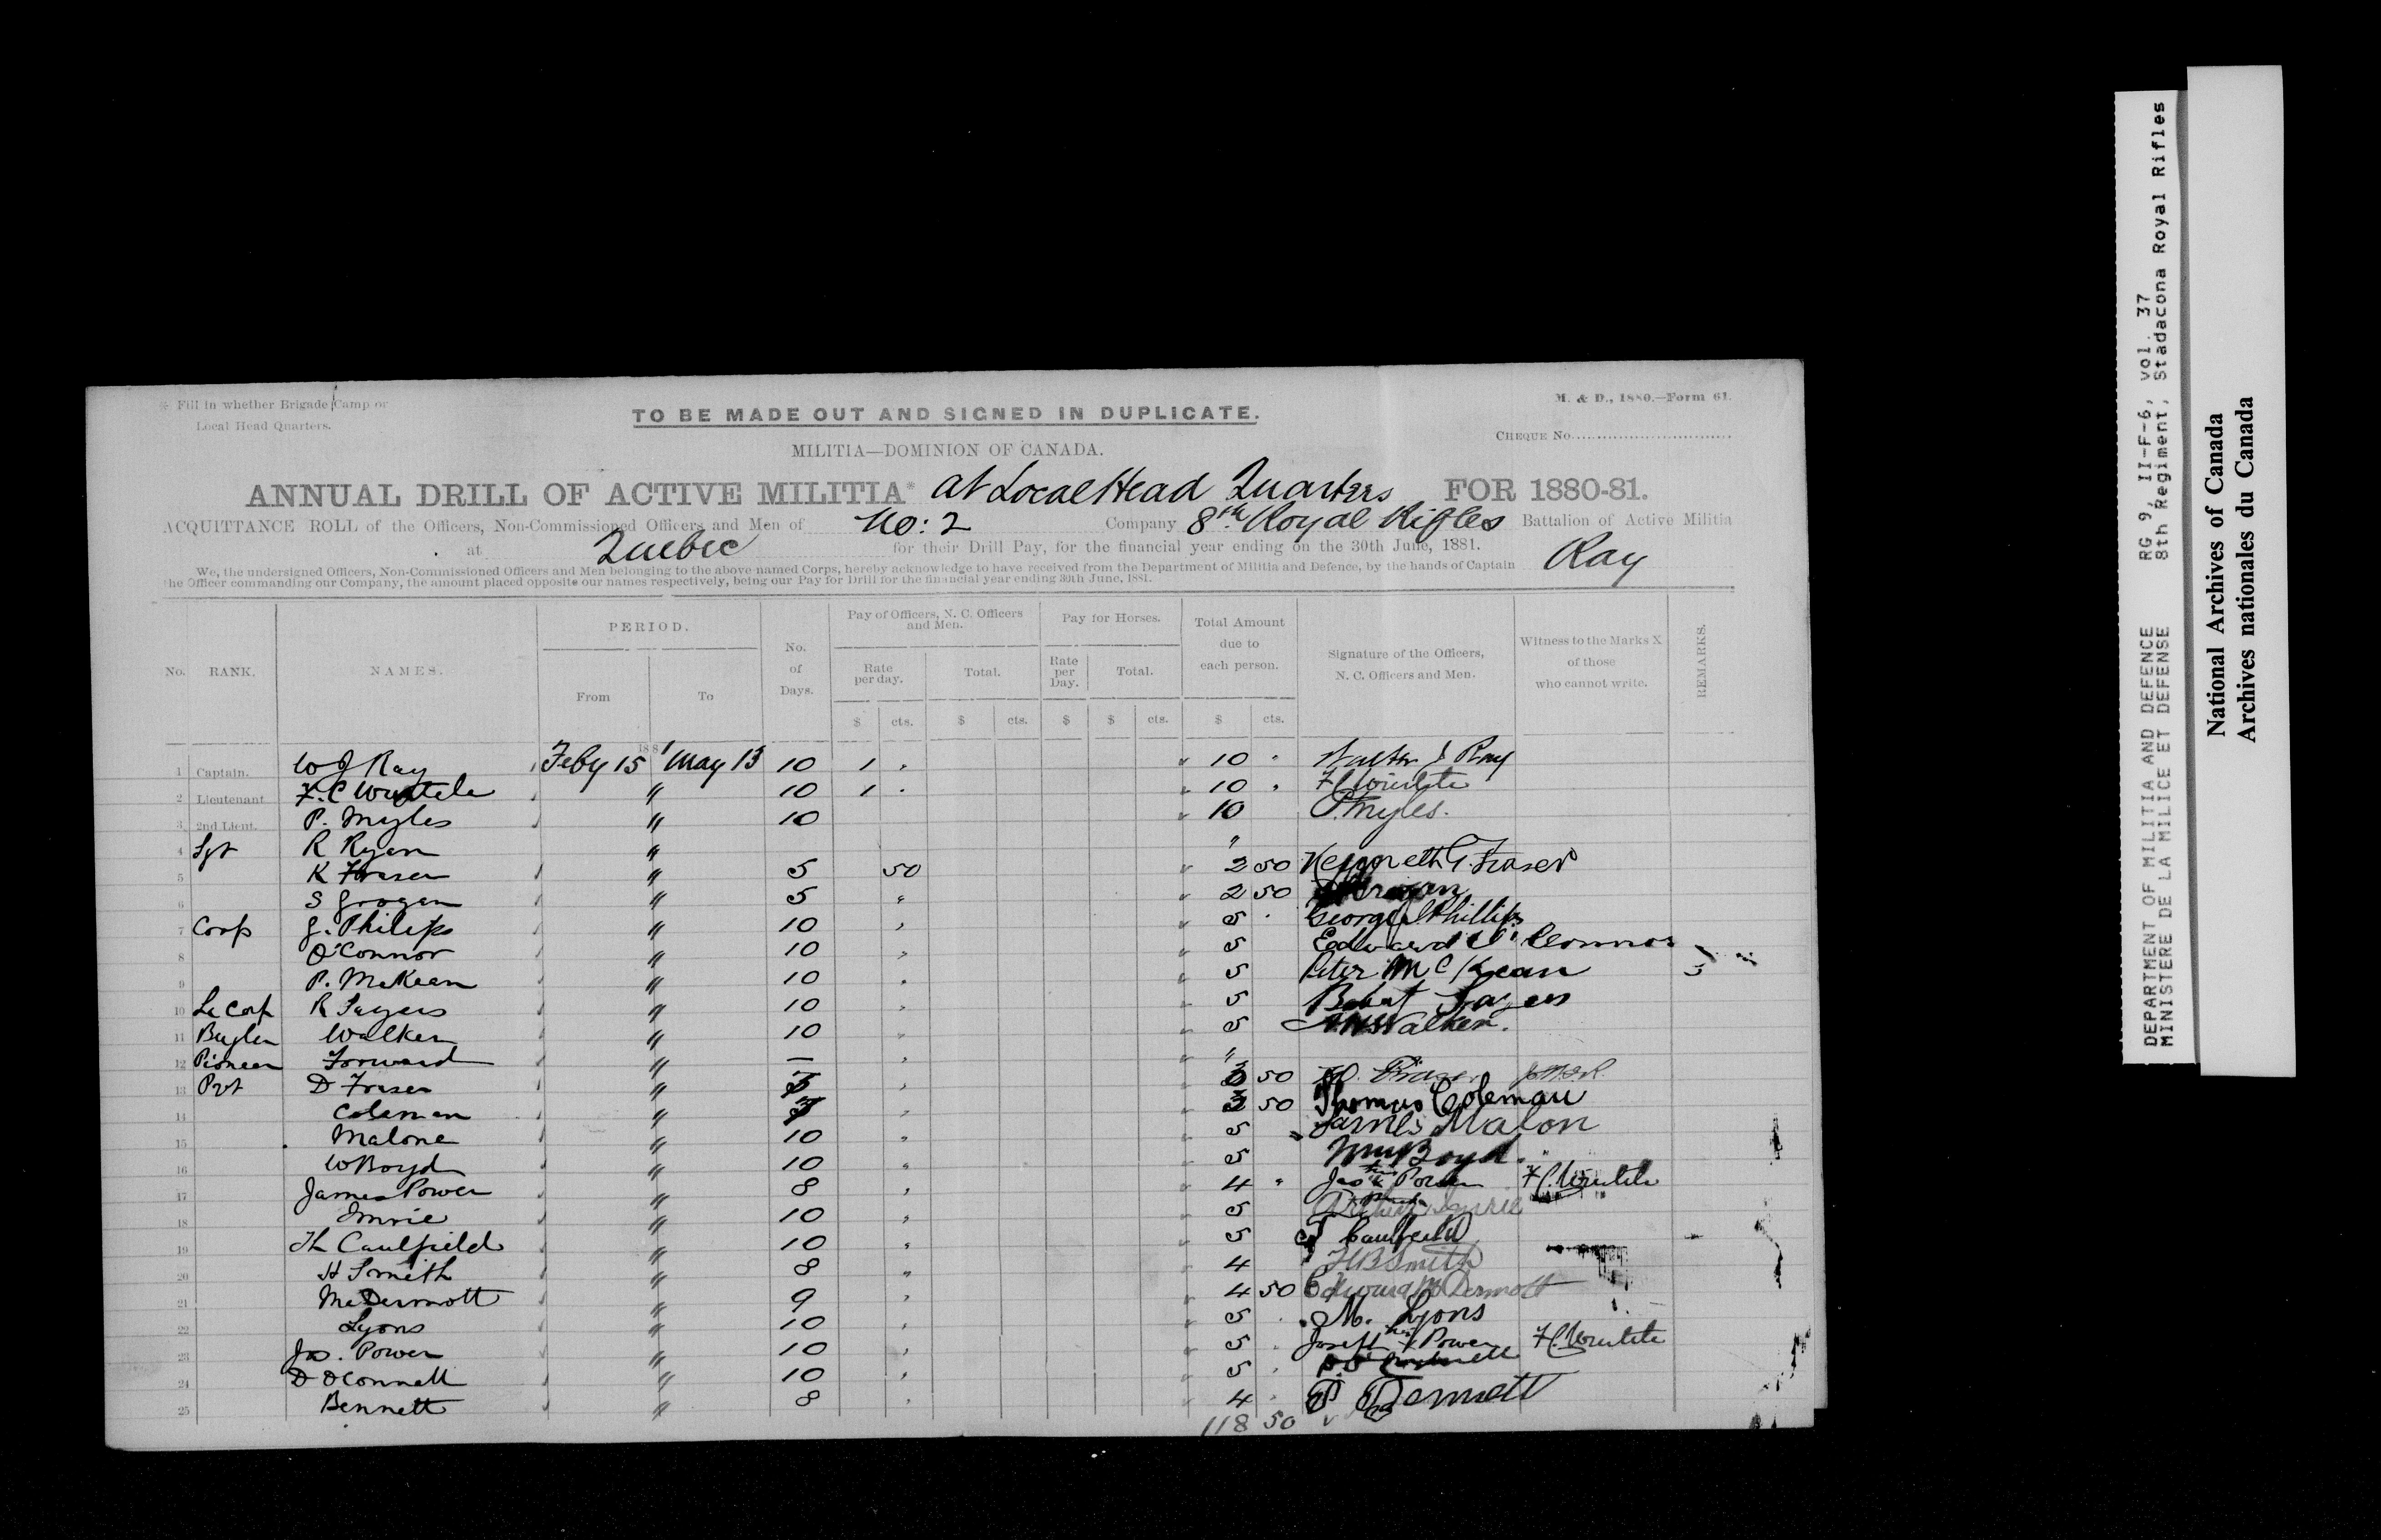 * Fill in whether Brigade Camp or
Local Head Quarters.
TO BE MADE OUT AND SIGNED IN DUPLICATE.
M. & D., 1880.—Form 61.
CHEQUE No.
MILITIA—DOMINION OF CANADA.
ANNUAL DRILL OF ACTIVE MILITIA* at Local Head Quarters FOR 1880-81.
ACQUITTANCE ROLL of the Officers, Non-Commissioned Officers and Men of No: 2 Company 8th Royal Rifles Battalion of Active Militia
at Quebec for their Drill Pay, for the financial year ending on the 30th June, 1881.
We, the undersigned Officers, Non-Commissioned Officers and Men belonging to the above-named Corps, hereby acknowledge to have received from the Department of Militia and Defence, by the hands of Captain Ray
the Officer commanding our Company, the amount placed opposite our names respectively, being our Pay for Drill for the financial year ending 30th June, 1881.
No. RANK. NAMES. PERIOD. From To No. of Days. Pay of Officers, N. C. Officers and Men. Rate per day. Total. Pay for Horses. Rate per Day. Total. Total Amount due to each person. Signature of the Officers, N. C. Officers and Men. Witness to the Marks X of those who cannot write. REMARKS.
$ cts. $ cts. $ $ cts. $ cts.
1881
1 Captain. W J Ray Feby 15 May 13 10 1 " 10 " Walter J Ray
2 Lieutenant F. C Wurtele " 10 1 " 10 " F C Wurtele
3 2nd Lieut. P. Myles " 10 10 P. Myles.
4 Sgt R Ryan " "
5 K Fraser " 5 50 2 50 Kenneth G. Fraser
6 S Grogan " 5 " 2 50 Grogan
7 Corp G. Philips " 10 " 5 " George Phillips
8 O'Connor " 10 " 5 Edward O'Connor
9 P. McKean " 10 " 5 Peter McKean
10 La Corp R Sayers " 10 " 5 Robert Sayers
11 Bugler Walker " 10 " 5 Walker.
12 Pioneer Forward " — " "
13 Pvt D Fraser " " 50 D. Fraser
14 Coleman " " 50 Thomas Coleman
15 Malone " 10 " 5 James Malon
16 W Boyd " 10 " 5 Wm Boyd.
17 James Power " 8 " 4 " Jas his x mark Power F C Wurtele
18 Imrie " 10 " 5
19 Th Caulfield " 10 " 5 T Caulfield
20 H Smith " 8 " 4 H B Smith
21 McDermott " 9 " 4 50 Edward McDermott
22 Lyons " 10 " 5 M. Lyons
23 Jos. Power " 10 " 5 Joseph his x Power F C Wurtele
24 D O'Connell " 10 " 5
25 Bennett " 8 " 4 Bennett
118 50
DEPARTMENT OF MILITIA AND DEFENCE RG 9, II-F-6, vol. 37
MINISTERE DE LA MILICE ET DEFENSE 8th Regiment, Stadacona Royal Rifles
National Archives of Canada
Archives nationales du Canada